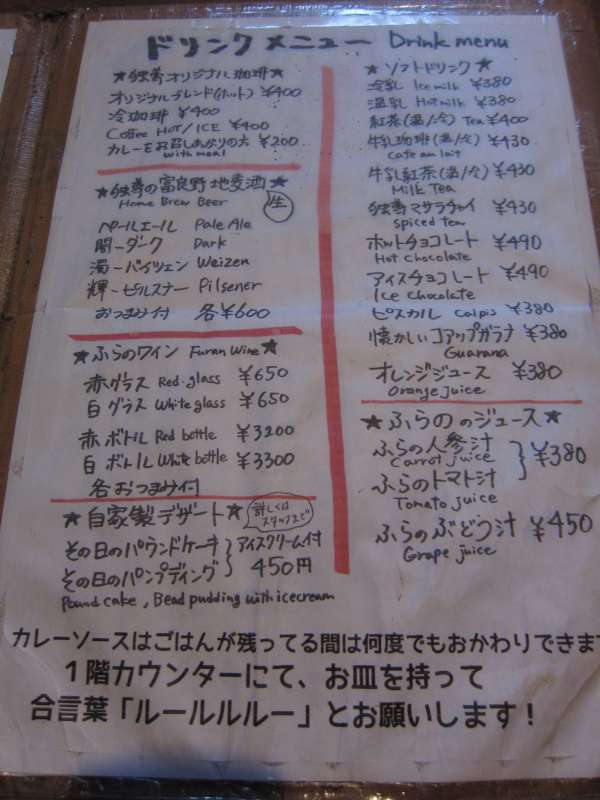 ドリンクメニュー Drink menu
★独尊オリジナル珈琲★
オリジナルブレンド(ホット) ¥400
冷珈琲 ¥400
Coffee HOT/ICE ¥400
カレーをお召しあがりの方 ¥200
with meal
★独尊の富良野地麦酒★
Home Brew Beer 生
ペールエール Pale Ale
闇-ダーク Dark
濁-バイツェン Weizen
輝-ピルスナー Pilsener
おつまみ付 各¥600
★ふらのワイン Furan Wine★
赤グラス Red glass ¥650
白グラス White glass ¥650
赤ボトル Red bottle ¥3200
白ボトル White bottle ¥3300
各おつまみ付
★自家製デザート★ 詳しくは
スタッフまで
その日のパウンドケーキ アイスクリーム付
その日のパンプディング 450円
Pound cake, Bead pudding with icecream
★ソフトドリンク★
冷乳 Ice milk ¥380
温乳 Hot milk ¥380
紅茶(温/冷) Tea ¥400
牛乳珈琲(温/冷) ¥430
cafe au lait
牛乳紅茶(温/冷) ¥430
Milk Tea
独尊マサラチャイ ¥430
spiced tea
ホットチョコレート ¥490
Hot chocolate
アイスチョコレート ¥490
Ice chocolate
ピスカル Calpis ¥380
懐かしいコアップガラナ ¥380
Guarana
オレンジジュース ¥380
Orange juice
★ふらののジュース★
ふらの人参汁 ¥380
Carrot juice
ふらのトマト汁
Tomato juice
ふらのぶどう汁 ¥450
Grape juice
カレーソースはごはんが残ってる間は何度でもおかわりできます
1階カウンターにて、お皿を持って
合言葉「ルールルルー」とお願いします!